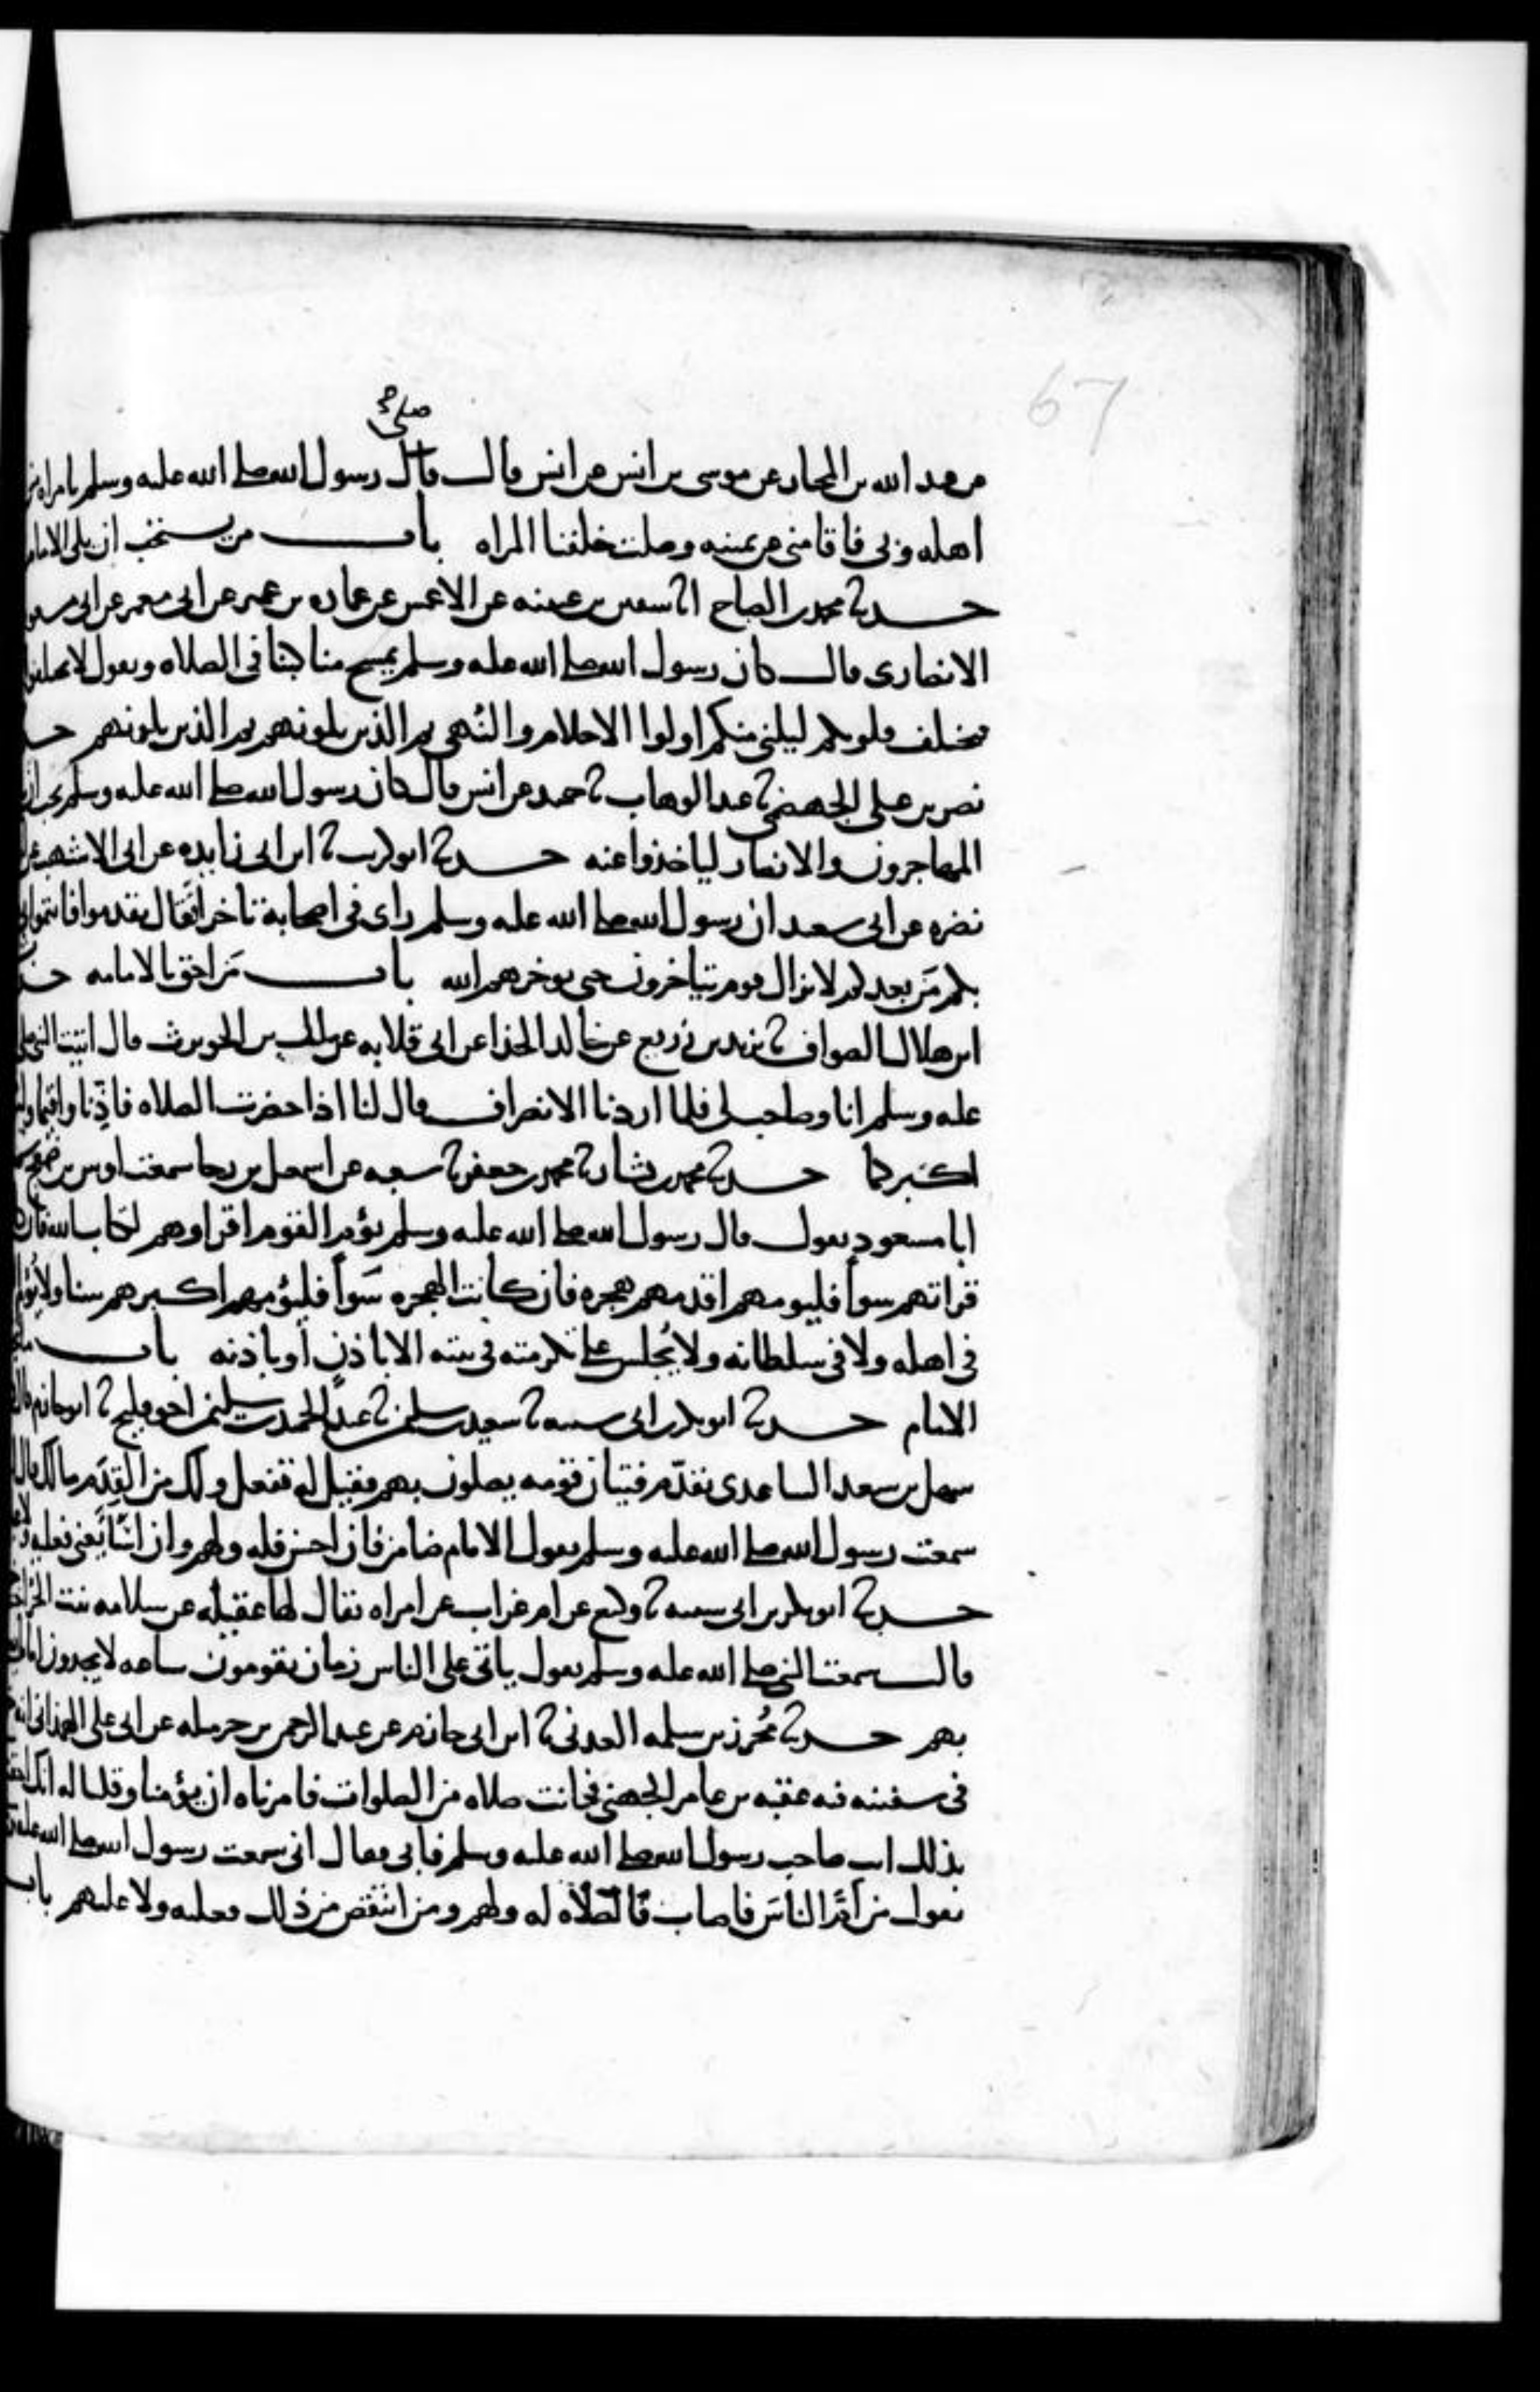 67
صلى صح
عن عبد الله بن المختار عن موسى بن انس عن انس قال قال رسول الله صلى الله عليه وسلم بامراه من
اهله وبى فاقامنى عن يمينه وصلت خلفنا المراه باب من يستحب ان يلى الامام
حدثنا محمد بن الصباح انا سفين بن عيينه عن الاعمش عن عماره بن عمير عن ابى معمر عن ابى مسعود
الانصارى قال كان رسول الله صلى الله عليه وسلم يمسح مناكبنا فى الصلاه ويقول لا تختلفوا
فتختلف قلوبكم ليلنى منكم اولوا الاحلام والنهى ثم الذين يلونهم ثم الذين يلونهم حد
نصر بن على الجهضمى ثنا عبد الوهاب ثنا حميد عن انس قال كان رسول الله صلى الله عليه وسلم يحب ان
المهاجرون والانصار لياخذوا عنه حدثنا ابو كريب ثنا ابن ابى زايده عن ابى الاشهب عن
نضره عن ابى سعيد ان رسول الله صلى الله عليه وسلم راى فى اصحابه تاخرا فقال تقدموا فاتموا بى
بكم من بعدكم لا يزال قوم يتاخرون حتى يوخرهم الله باب من احق بالامامه حد
ابن هلال الصواف ثنا يزيد بن زريع عن خالد الحذا عن ابى قلابه عن مالك بن الحويرث قال اتيت النبى صلى
عليه وسلم انا وصاحب لى فلما اردنا الانصراف قال لنا اذا حضرت الصلاه فاذنا واقيما
اكبركما حدثنا محمد بن بشار ثنا محمد بن جعفر ثنا شعبه عن اسمعيل بن رجا سمعت اوس بن ضمعج
ابا مسعود يقول قال رسول الله صلى الله عليه وسلم يؤم القوم اقراوهم لكتاب الله فان
قراتهم سوا فليومهم اقدمهم هجره فان كانت الهجره سوا فليؤمهم اكبرهم سنا ولا يؤم
فى اهله ولا فى سلطانه ولا يجلس على تكرمته فى بيته الا باذن او باذنه باب
الامام حدثنا ابو بكر بن ابى شيبه ثنا سعيد بن سليمن ثنا عبد الحميد بن سليمن اخو فليح ثنا ابو حازم قال
سهل بن سعد الساعدى تقدم فتيان قومه يصلون بهم فقيل له تفعل ولك من القدم مالك قال
سمعت رسول الله صلى الله عليه وسلم يقول الامام ضامن فان احسن فله ولهم وان اسا يعنى فعليه ولا
حدثنا ابو بكر بن ابى شيبه ثنا وكيع عن ام غراب عن امراه يقال لها عقيله عن سلامه بنت الحر
قالت سمعت النبى صلى الله عليه وسلم يقول ياتى على الناس زمان يقومون ساعه لا يجدون اماما
بهم حدثنا محرز بن سلمه العدنى ثنا ابن ابى حازم عن عبد الرحمن بن حرمله عن ابى على الهمدانى انه
فى سفينه فيه عقبه بن عامر الجهنى فحانت صلاه من الصلوات فامرناه ان يؤمنا وقلنا له انك احق
بذلك انت صاحب رسول الله صلى الله عليه وسلم فابى فقال انى سمعت رسول الله صلى الله عليه
يقول من ام الناس فاصاب فالصلاه له ولهم ومن انتقص من ذلك فعليه ولا عليهم باب